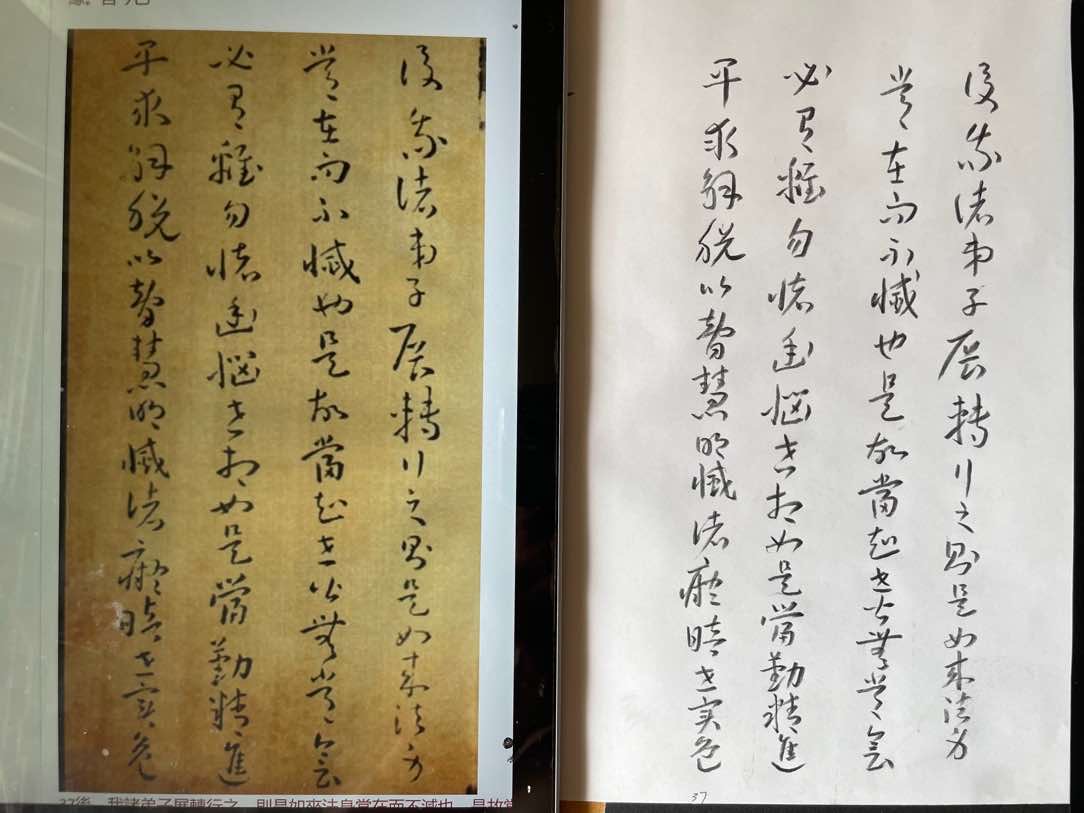 緣。自今已
後我諸弟子展轉行之則是如來法身
常在而不滅也是故當知世皆無常會
必有離勿懷憂惱世相如是當勤精進
早求解脫以智慧明滅諸癡暗世實危
37後，我諸弟子展轉行之，則是如來法身常在而不滅也。是故當
後我諸弟子展轉行之則是如來法身
常在而不滅也是故當知世皆無常會
必有離勿懷憂惱世相如是當勤精進
早求解脫以智慧明滅諸癡暗世實危
37